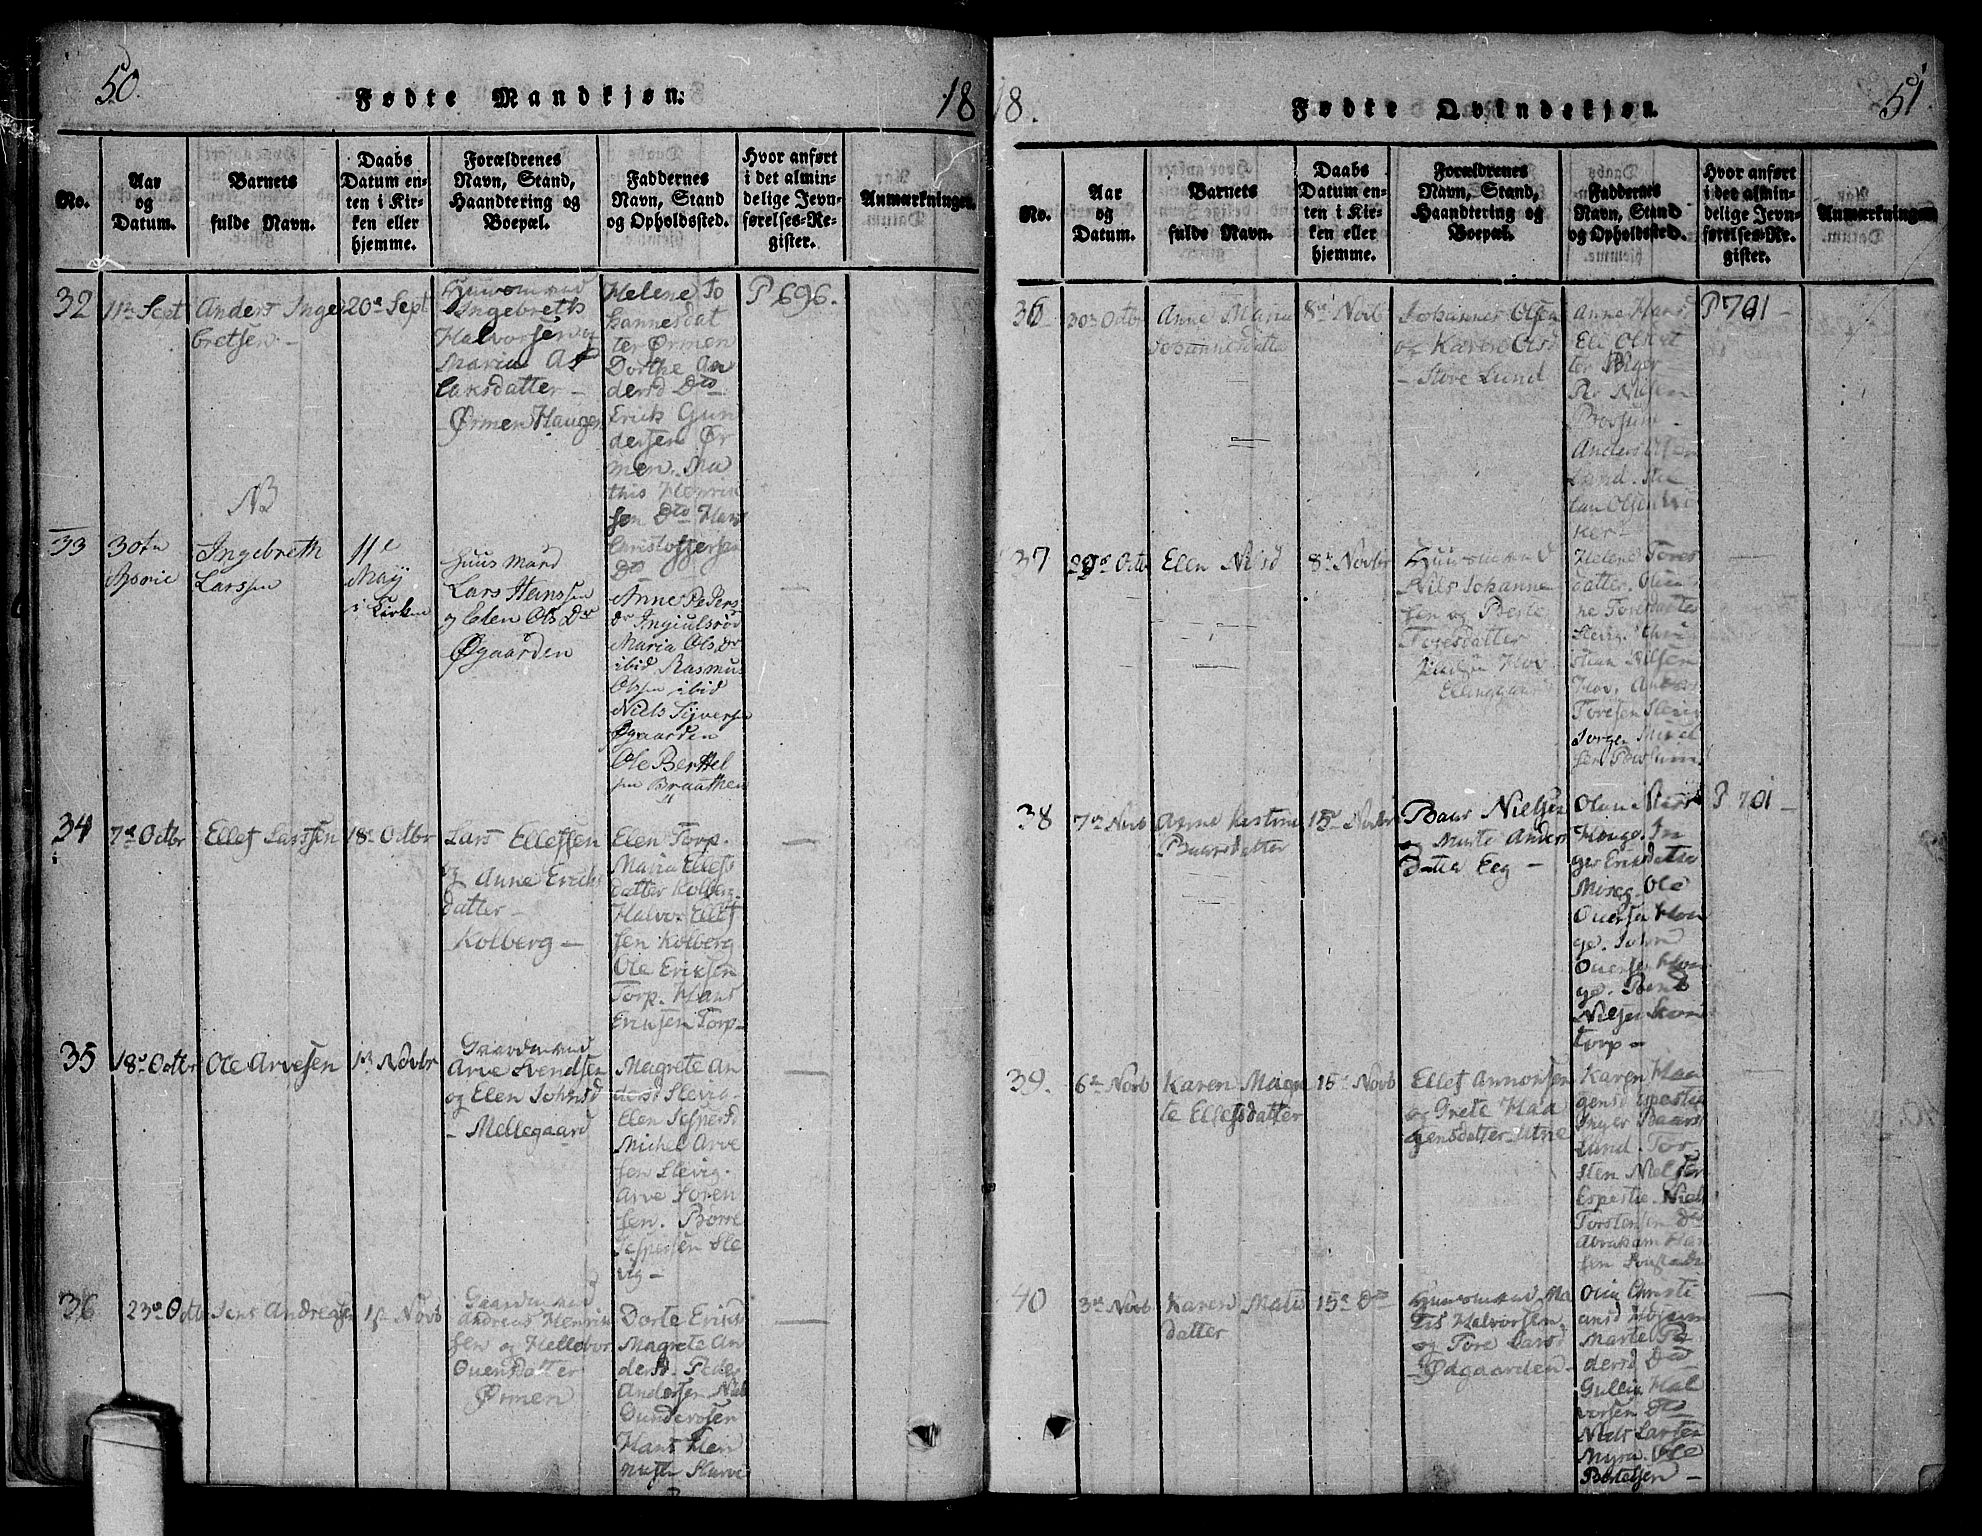 50.
Fødte Mandkjøn.
18
No.
Aar og Datum.
Barnets fulde Navn.
Daabs Datum enten i Kirken eller hjemme.
Forældrenes Navn, Stand, Haandtering og Boepæl.
Faddernes Navn, Stand og Opholdssted.
Hvor anført i det almindelige Jevnførelses-Register.
Anmærkninger.
32
11te Sept
Anders Inge
bretsen
20de Sept
Huusmand
Ingebreth
Halvorsen og
Maria As
laksdatter
Ørmen Haugen
Helene Jo
hannesdat
ter Ørmen
Dorthe An
dersd Dto
Erick Gun
dersen Ør
men. Ma
this Henrik
sen Dto Hans
Christoffersen
Dto
P 696.
NB
33
30te
Ingebreth
Larssen
11te
May
i Kirken
Huusmand
Lars Hanssen
og Elen Ols Dr
Øgaarden
Anne Peders
Dr Ingiulsrød
Maria Ols Dr
ibid Rasmus
Olssen ibid
Niels Syversen
Øgaarden
Ole Berthel
sen Braathen
34
7de Octbr
Ellef Larssen
18de Octbr
Lars Ellefsen
og Anne Eriks
datter
Kolberg
Elen Torp.
Maria Ellefs
datter Kolberg
Halvor Ellef
sen Kolberg
Ole Eriksen
Torp. Hans
Eriksen Torp
35
18de Octbr
Ole Arvesen
1ste Novbr
Gaardmand
Arve Svendsen
og Elen Johnsd
Mellegaard
Magrete An
dersd Slevig
Elen Jespersd
Michel Arve
sen Slevig.
Arve Soren
sen. Borre
Jespersen Sle
vig
36
23de Octbr
Jens Andreasen
1ste Novb
Gaardmand
Andreas Henrik
sen og Hellebor
Ouensdatter
Ørmen
Dorte Eriksd
Magrete An
dersd. Peder
Andersen Niels
Gundersen
Hans Hen
51
18.
Fødte Qvindekjøn.
No.
Aar og Datum.
Barnets fulde Navn.
Daabs Datum enten i Kirken eller hjemme.
Forældrenes Navn, Stand, Haandtering og Boepæl.
Faddernes Navn, Stand og Opholdssted.
Hvor anført i det almindelige Jevnførelses-Register.
Anmærkninger.
36
30te Octbr
Anne Maria
Johannesdatter
8de Novb
Johannes Olsen
og Karen Olsd
Store Lund
Anne Hansd
Eli Olsdat
ter
Per Nilsen
Bossum
Anders Olsen
Lund.
lan Olsen
P 701
37
29de Octb
Elen Nilsd
8de Novbr
Huusmand
Nils Johanne
sen og Berte
Toresdatter
Hov
Helene Tores
datter. Oli
ne Toresdatter
Slevig. Chri
stian Nilsen
Hov. Anders
Toresen Slevig
Jorgen Michel
sen Bossum
38
7de Novb
Anne Kirstine
Baarsdatter
15de Novbr
Baar Nielsen
og Marte Anders
datter Eeg
Hauge. In
ger Eriksdatter
Ole
Ouersen Hau
ge. John
Ouersen Hau
ge. Bent
Nielsen
torp
P 701
39.
6te Novb
Karen Magre
te Ellefsdatter
15de Novb
Ellef Annonsen
og Grete Haa
gensdatter Utne
Karen Haa
gensd Espestie
Inger Baarsd
Lund. Tor
sten Nielsen
Espestie. Niels
Torstensen Dto
Abraham Han
sen
40
3de Novb
Karen Matis
datter
15de Dto
Huusmand Ma
tis Halvorsen
og Tore Larsd
Ødgaarden
Olia Christi
ansd
Marte Pe
dersd Dto
Gullik Hal
vorsen Dto
Niels Larsen
Myra. Ole
Bertelsen